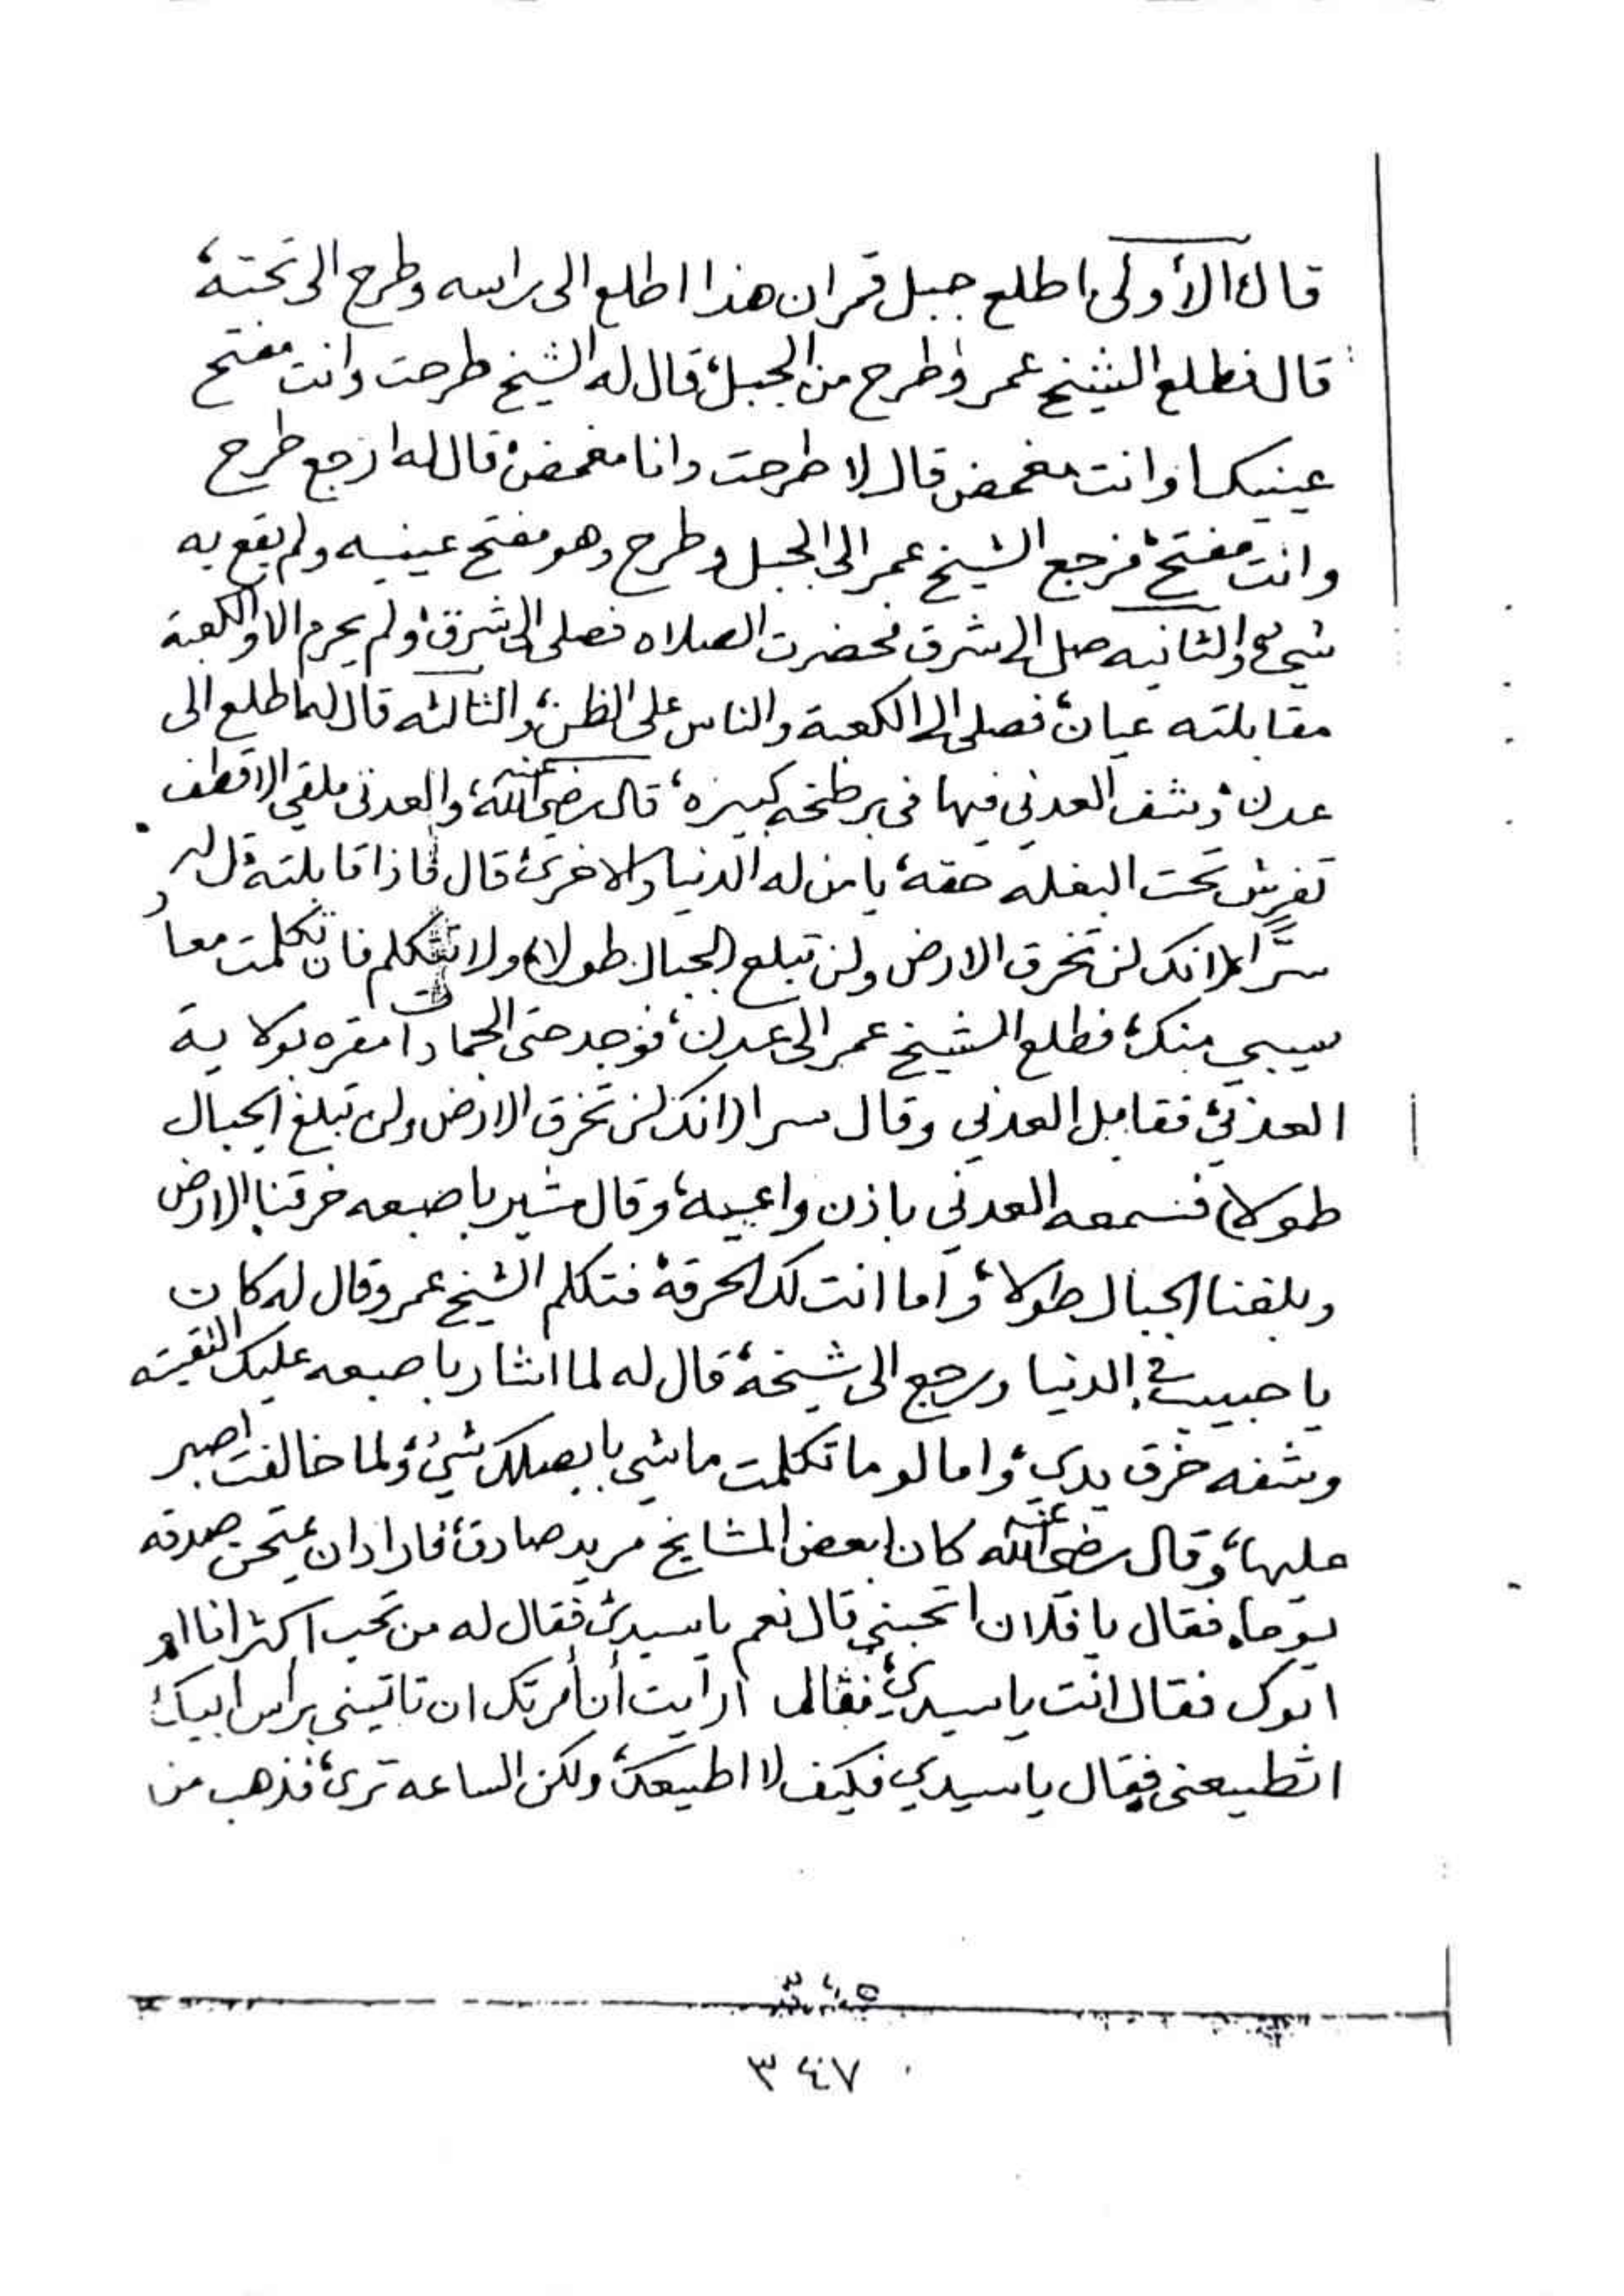 قال الأولى اطلع جبل قمران هذا اطلع الى راسه وطرح الى تحته
قال فطلع الشيخ عمر وطرح من الجبل قال له الشيخ طرحت وانت مفتح
عينيك او انت مغمض قال لا طرحت وانا مغمض قال له ارجع طرح
وانت مفتح فرجع الشيخ عمر الى الجبل وطرح وهو مفتح عينيه ولم يقع به
شيء والثانيه صل الى شرق فحضرت الصلاه فصلى الى شرق ولم يحرم الا والكعبة
مقابلته عيان فصلى الى الكعبة والناس على الظن والثالثه قال لما طلع الى
عدن وشف العدني فيها في كبيره قال رضي الله عنه والعدني ملقي الاقطف
تفرش تحت البغله حقه يا من له الدنيا والاخرى قال فاذا قابلته قل له
سرًّا انك لن تخرق الارض ولن تبلغ الجبال طولا ولا تتكلم فان تكلمت معاد
سيبي منك فطلع الشيخ عمر الى عدن فوجد حتى الجمادا مقره بولاية
العدني فقابل العدني وقال سرا انك لن تخرق الارض ولن تبلغ الجبال
طولا فسمعه العدني باذن واعيه وقال مشير باصبعه خرقنا الارض
وبلغنا الجبال طولا واما انت لك الحرقة فتكلم الشيخ عمر وقال له كان
يا حبيب في الدنيا ورجع الى شيخه قال له لما اشار باصبعه عليك التقيته
وشفه خرق يدي واما لو ما تكلمت ماشي با يصلك شي ولما خالفت اصبر
عليها وقال رضي الله عنه كان بعض المشايخ مريد صادق فاراد ان يمتحن صدقه
يوما فقال يا فلان اتحبني قال نعم يا سيدي فقال له من تحب اكثر انا او
ابوك فقال انت يا سيدي فقال ارأيت أن أمرتك ان تاتيني برأس ابيك
اتطيعني فقال يا سيدي فكيف لا اطيعك ولكن الساعه ترى فذهب من
٣٤٥
٣٤٧